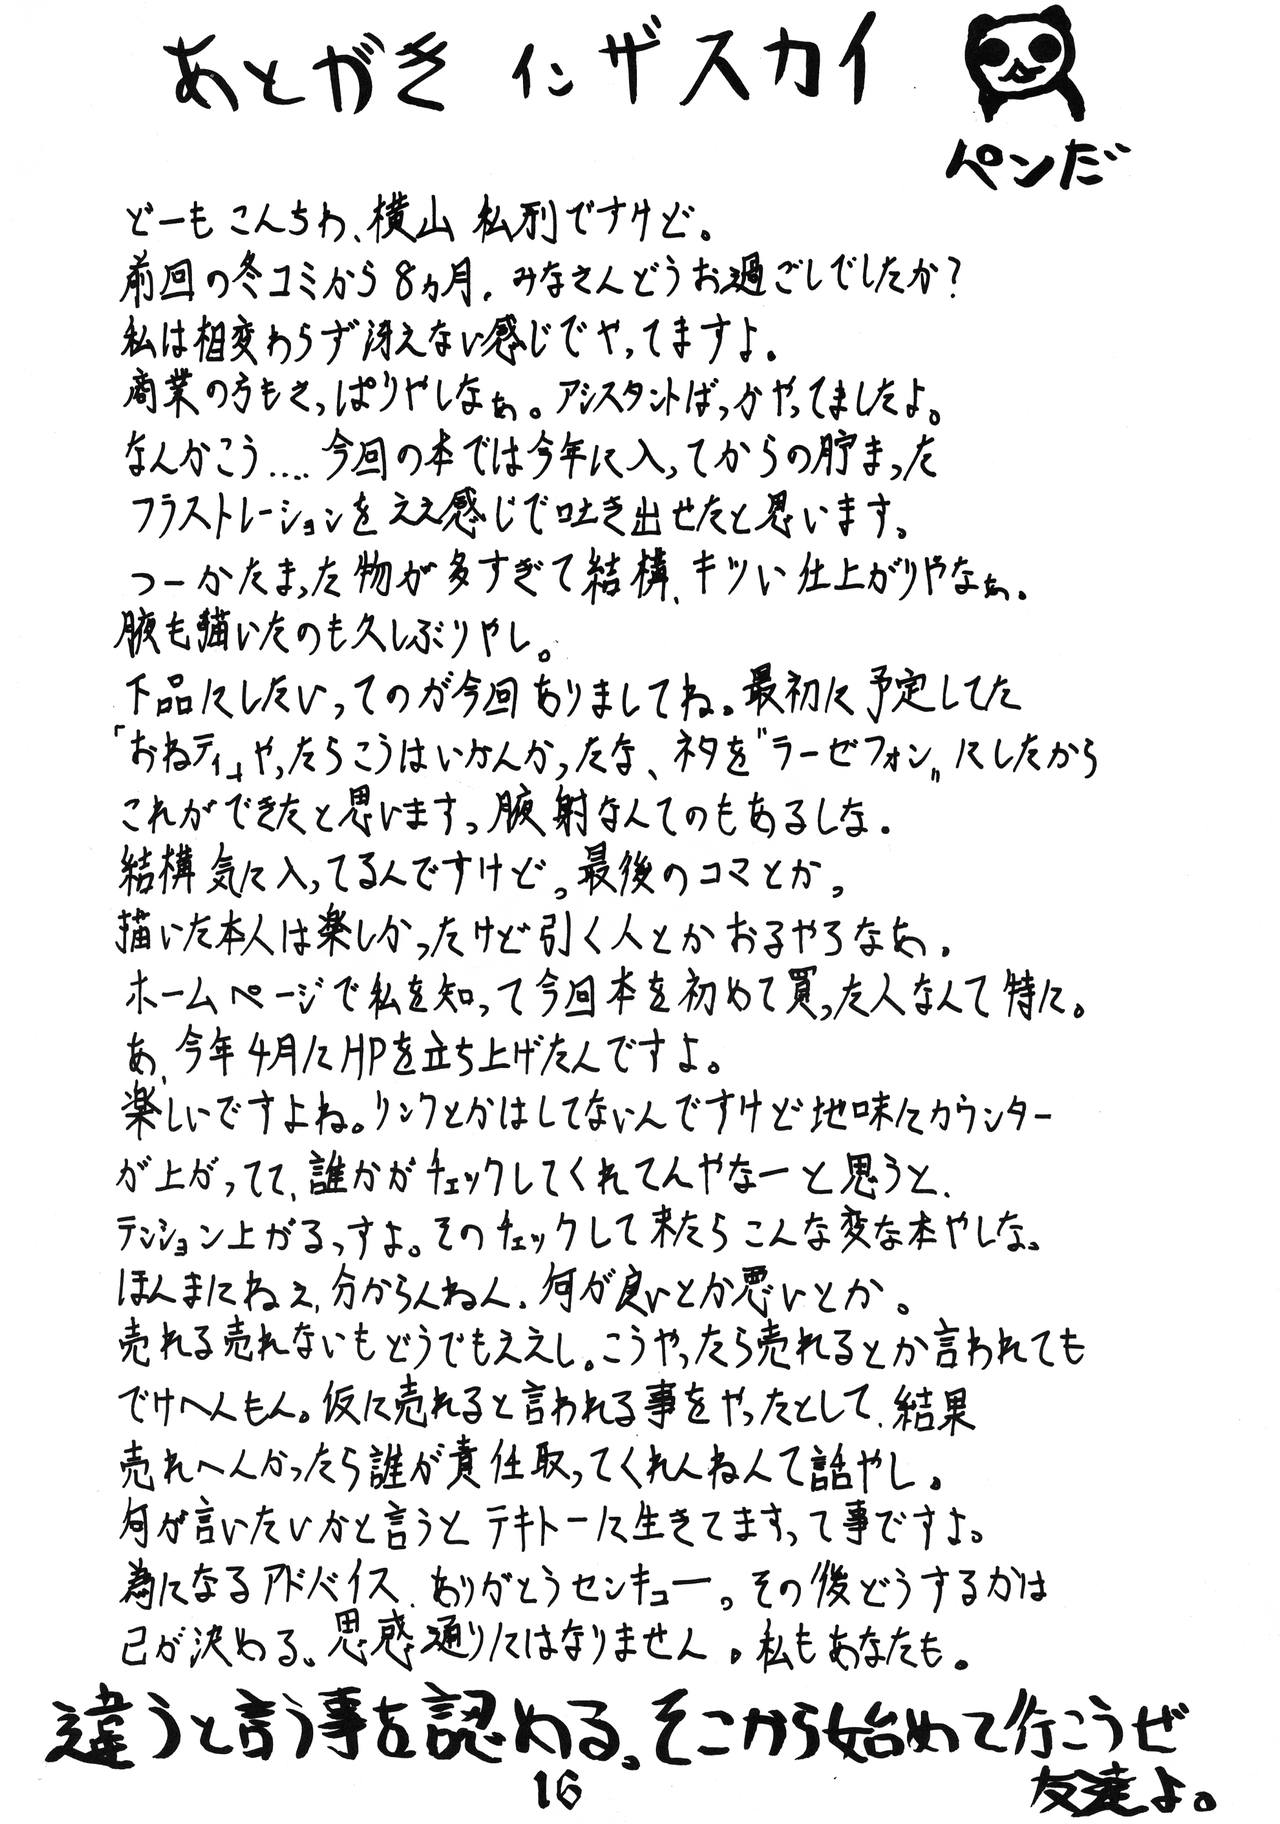 あとがき インザスカイ
ペンだ
どーもこんちわ、横山私利ですけど。
前回の冬コミから8ヵ月、みなさんどうお過ごしでしたか?
私は相変わらず冴えない感じでやってますよ。
商業の方もさっぱりやしなぁ。アシスタントばっかやってましたよ。
なんかこう....今回の本では今年に入ってからの貯まった
フラストレーションをええ感じで吐き出せたと思います。
つーかたまった物が多すぎて結構、キツい仕上がりやなぁ。
腋も描いたのも久しぶりやし。
下品にしたいってのが今回ありましてね。最初に予定してた
「おねティ」やったらこうはいかんかったな、ネタを"ラーゼフォン"にしたから
これができたと思います。腋射なんてのもあるしな。
結構気に入ってるんですけど。最後のコマとか。
描いた本人は楽しかったけど引く人とかおるやろなあ。
ホームページで私を知って今回本を初めて買った人なんて特に。
あ、今年4月にHPを立ち上げたんですよ。
楽しいですよね。リンクとかはしてないんですけど地味にカウンター
が上がってて、誰かがチェックしてくれてんやなーと思うと、
テンション上がるっすよ。そのチェックして来たらこんな変な本やしな。
ほんまにねぇ、分からんねん。何が良いとか悪いとか。
売れる売れないもどうでもええし。こうやったら売れるとか言われても
でけへんもん。仮に売れると言われる事をやったとして、結果
売れへんかったら誰が責任取ってくれんねんて話やし。
何が言いたいかと言うとテキトーに生きてますって事ですよ。
為になるアドバイス、ありがとうセンキュー。その後どうするかは
己が決める。思惑通りにはなりません。私もあなたも。
違うと言う事を認める。そこから始めて行こうぜ
友達よ。
16